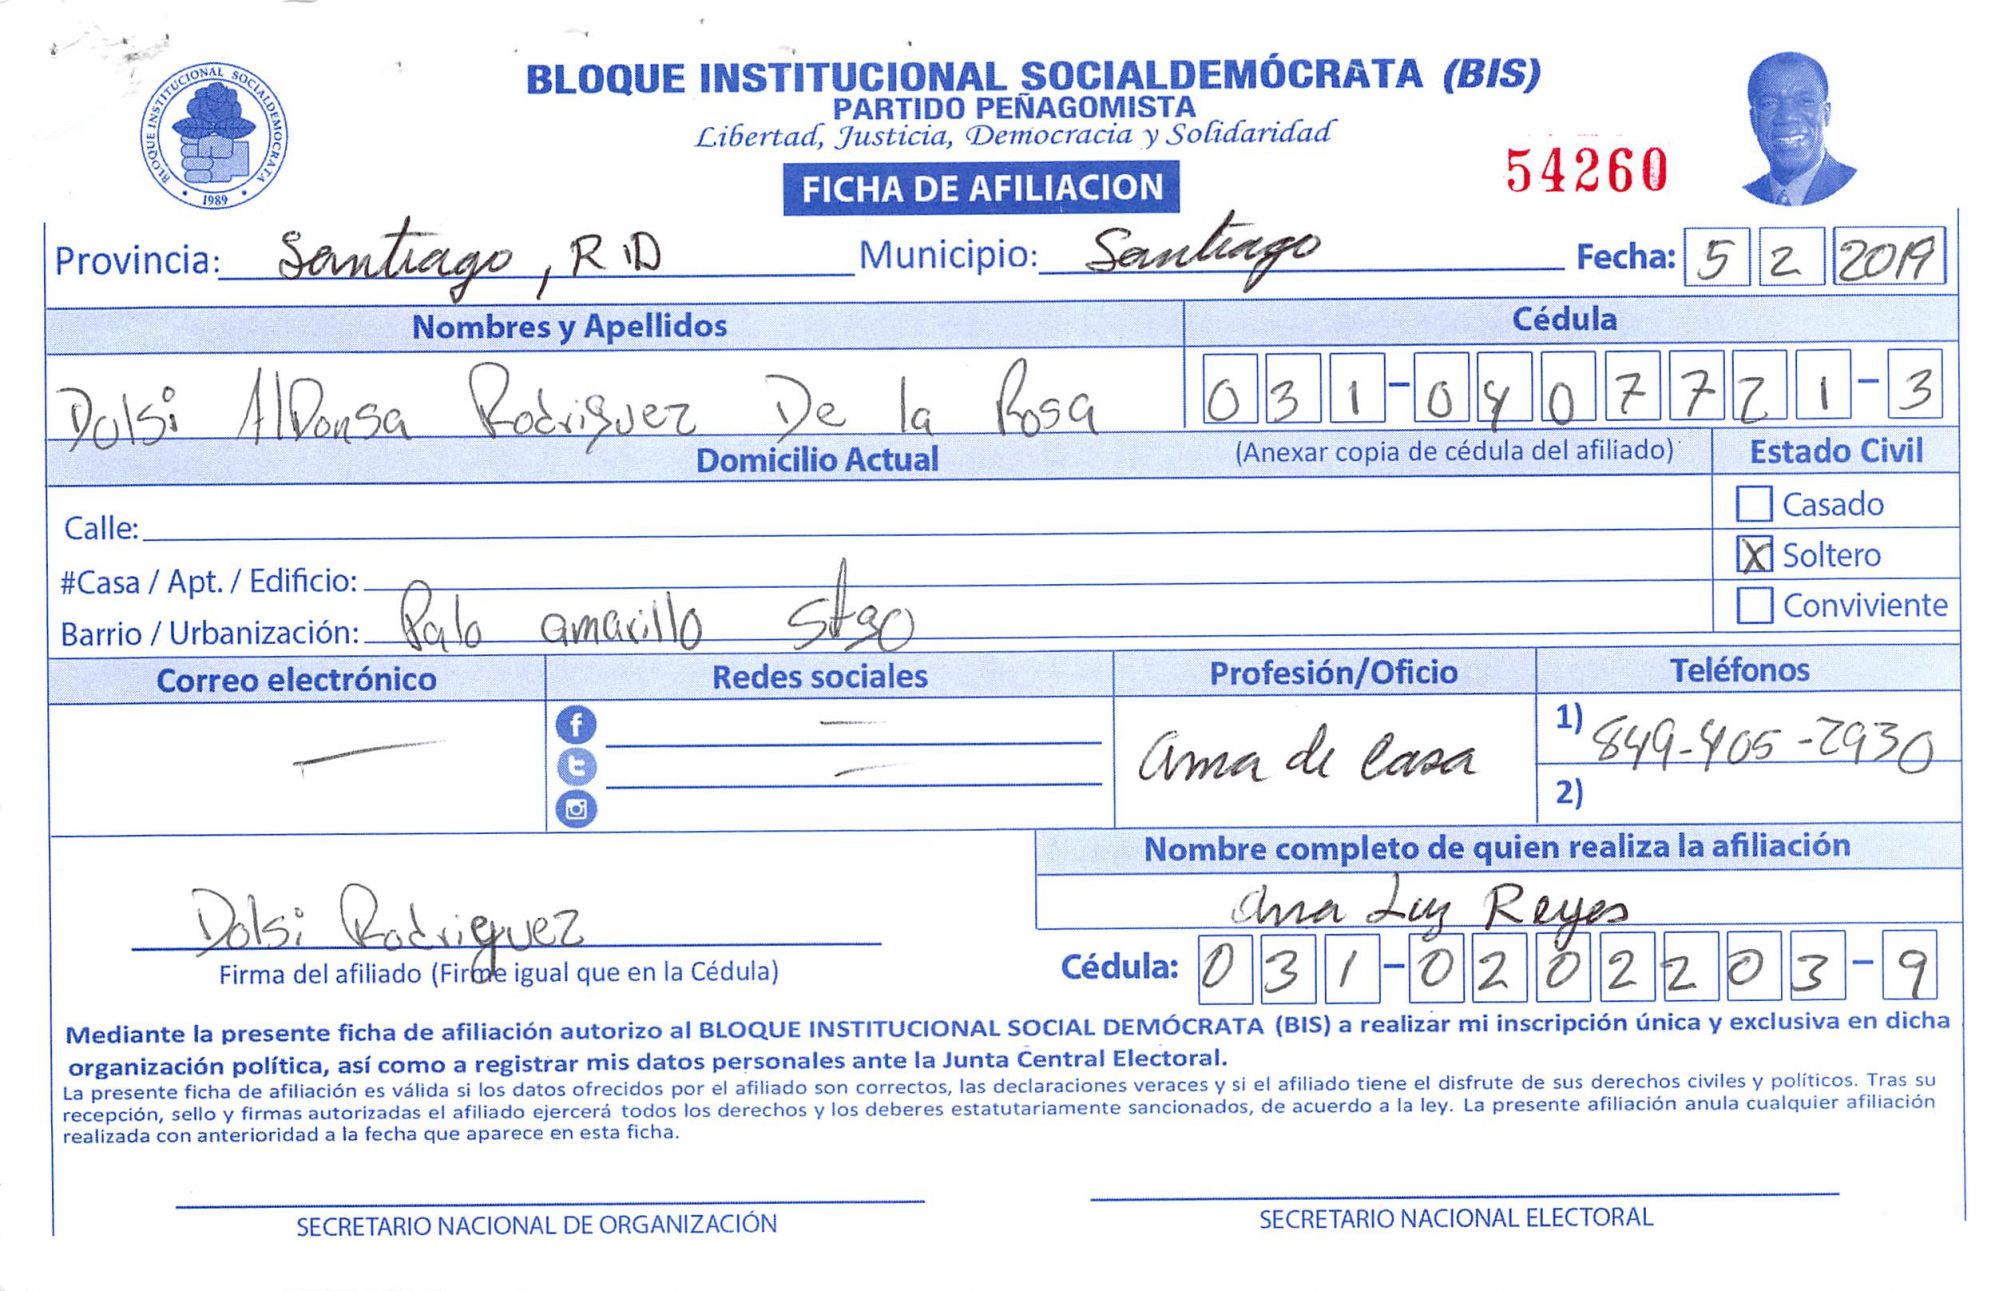 BLOQUE INSTITUCIONAL SOCIALDEMOCRATA
1989
BLOQUE INSTITUCIONAL SOCIALDEMÓCRATA (BIS)
PARTIDO PEÑAGOMISTA
Libertad, Justicia, Democracia y Solidaridad
FICHA DE AFILIACION
54260
Provincia: Santiago, RD Municipio: Santiago Fecha: 5 2 2019
Nombres y Apellidos Cédula
Dolsi AlDonsa Rodriguez De la Rosa 031-0407721-3
Domicilio Actual (Anexar copia de cédula del afiliado) Estado Civil
Casado
Calle:
X Soltero
#Casa / Apt. / Edificio:
Conviviente
Barrio / Urbanización: Palo amarillo Stgo
Correo electrónico Redes sociales Profesión/Oficio Teléfonos
— — ama de casa 1) 849-405-2930
—
2)
Nombre completo de quien realiza la afiliación
Ana Luz Reyes
Dolsi Rodriguez
Firma del afiliado (Firme igual que en la Cédula) Cédula: 031-0202203-9
Mediante la presente ficha de afiliación autorizo al BLOQUE INSTITUCIONAL SOCIAL DEMÓCRATA (BIS) a realizar mi inscripción única y exclusiva en dicha
organización política, así como a registrar mis datos personales ante la Junta Central Electoral.
La presente ficha de afiliación es válida si los datos ofrecidos por el afiliado son correctos, las declaraciones veraces y si el afiliado tiene el disfrute de sus derechos civiles y políticos. Tras su
recepción, sello y firmas autorizadas el afiliado ejercerá todos los derechos y los deberes estatutariamente sancionados, de acuerdo a la ley. La presente afiliación anula cualquier afiliación
realizada con anterioridad a la fecha que aparece en esta ficha.
SECRETARIO NACIONAL DE ORGANIZACIÓN SECRETARIO NACIONAL ELECTORAL